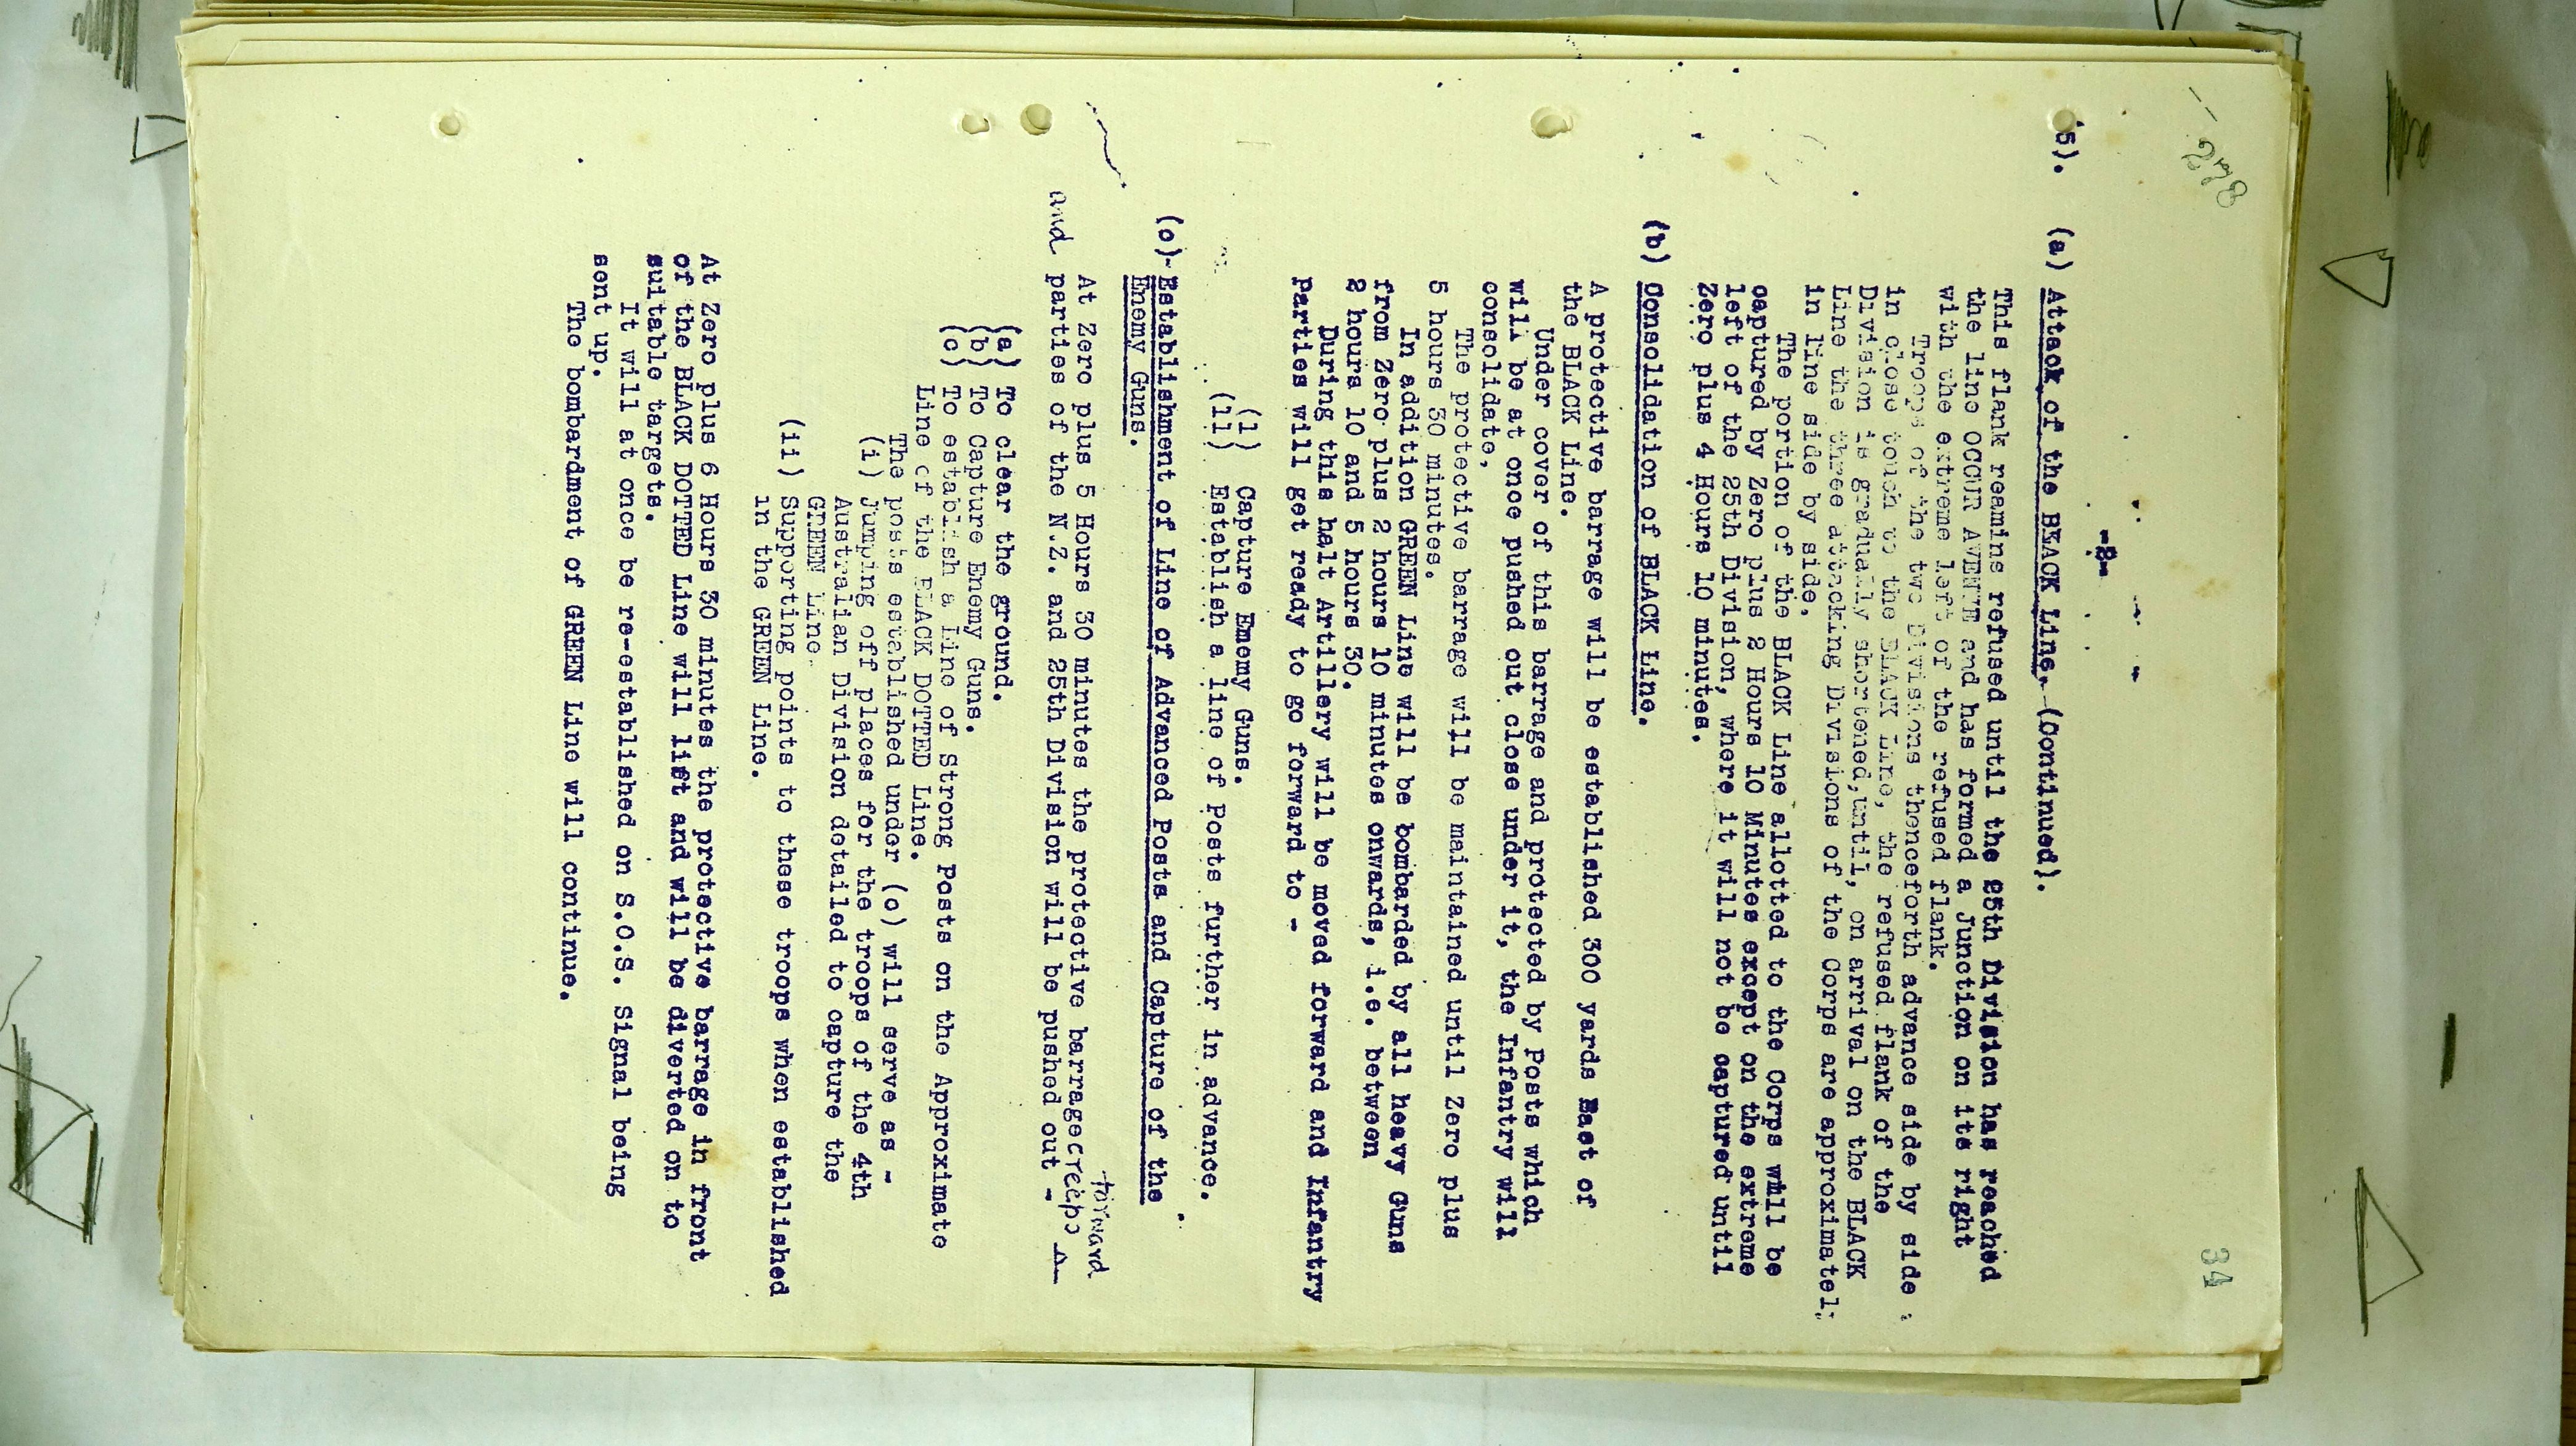 34
-2-
5). (a) Attack of the BLACK Line. (Continued).
This flank reamins refused until the 25th Division has reached
the line OCCUR AVENUE and has formed a Junction on its right
with the extreme left of the refused flank.
Troops of the two Divisions thenceforth advance side by side
in close touch to the BLACK Line, the refused flank of the
Division is gradually shortened, until, on arrival on the BLACK
Line the three attacking Divisions of the Corps are approximatel
in line side by side.
The portion of the BLACK Line allotted to the Corps will be
captured by Zero plus 2 Hours 10 Minutes except on the extreme
left of the 25th Division, where it will not be captured until
Zero plus 4 Hours 10 minutes.
(b) Consolidation of BLACK Line.
A protective barrage will be established 300 yards East of
the BLACK Line.
Under cover of this barrage and protected by Posts which
will be at once pushed out close under it, the Infantry will
consolidate,
The protective barrage will be maintained until Zero plus
5 hours 30 minutes.
In addition GREEN Line will be bombarded by all heavy Guns
from Zero plus 2 hours 10 minutes onwards, i.e. between
2 hours 10 and 5 hours 30.
During this halt Artillery will be moved forward and Infantry
parties will get ready to go forward to -
(i) Capture Enemy Guns.
(ii) Establish a line of Posts further in advance.
(c)- Establishment of Line of Advanced Posts and Capture of the
Enemy Guns.
forward
At Zero plus 5 Hours 30 minutes the protective barrage creeps
and parties of the N.Z. and 25th Division will be pushed out -
(a) To clear the ground.
(b) To Capture Enemy Guns.
(c) To establish a Line of Strong Posts on the Approximate
Line of the BLACK DOTTED Line.
The posts established under (c) will serve as -
(i) Jumping off places for the troops of the 4th
Australian Division detailed to capture the
GREEN Line.
(ii) Supporting points to these troops when established
in the GREEN Line.
At Zero plus 6 Hours 30 minutes the protective barrage in front
of the BLACK DOTTED Line will lift and will be diverted on to
suitable targets.
It will at once be re-established on S.O.S. Signal being
sent up.
The bombardment of GREEN Line will continue.